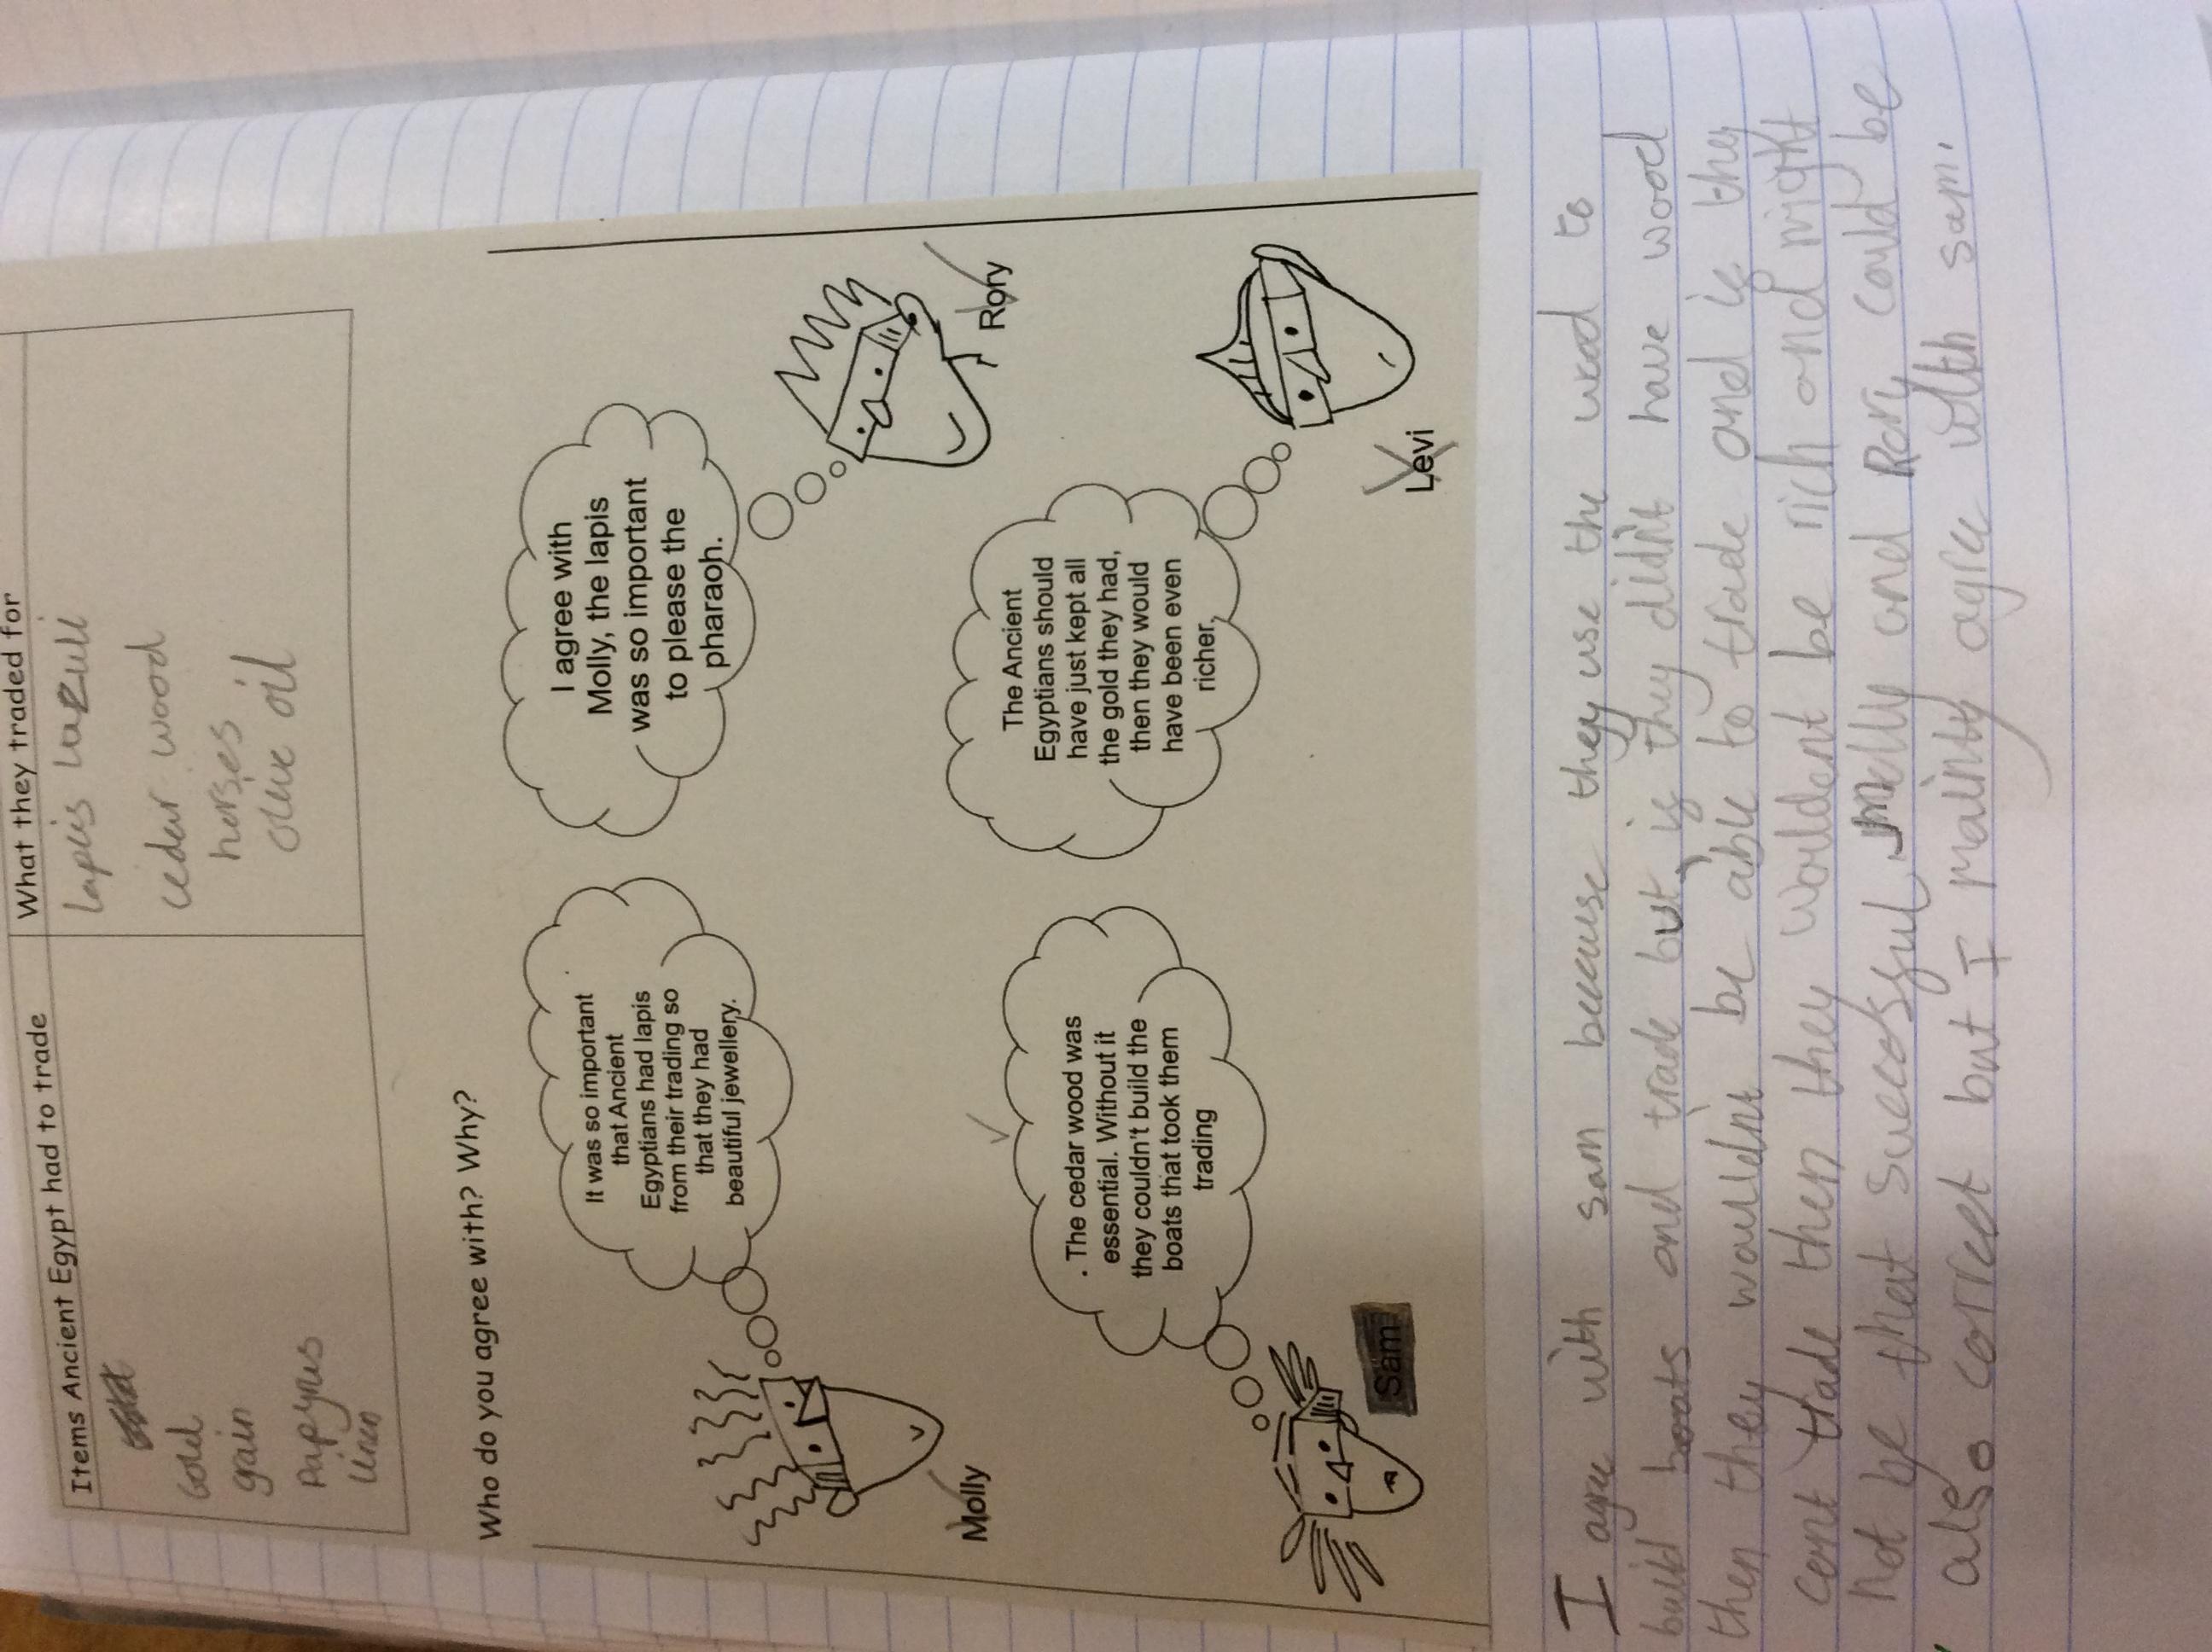 Items Ancient Egypt had to trade
What they traded for
Gold
grain
Papyrus
linen
lapis lazuli
cedar wood
horses
olive oil
Who do you agree with? Why?
It was so important
that Ancient
Egyptians had lapis
from their trading so
that they had
beautiful jewellery.
Molly
I agree with
Molly, the lapis
was so important
to please the
pharaoh.
Rory
. The cedar wood was
essential. Without it
they couldn't build the
boats that took them
trading
Sam
The Ancient
Egyptians should
have just kept all
the gold they had,
then they would
have been even
richer,
Levi
I agree with sam because they use the wood to
build boats and trade but, if they didn't have wood
then they would'nt be able to trade and if they
cant trade then they wouldent be rich and might
not be that successful, Molly and Rory could be
also correct but I mainly agree with sam.